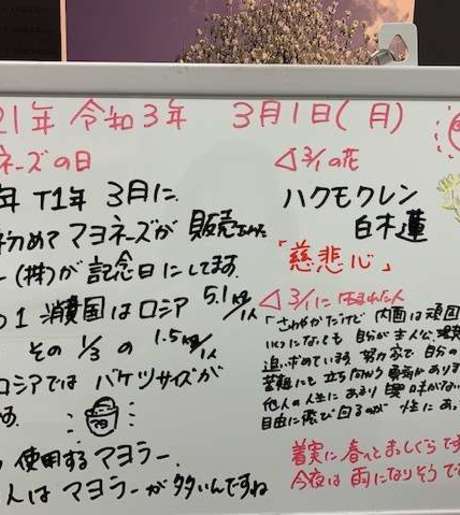 21年 令和3年 3月1日(月)
ネーズの日
年 T1年 3月に
初めて マヨネーズが 販売
ー(株)が 記念日にしてます。
の1 消費国は ロシア 5.1kg/1人
その 1/3 の 1.5kg/1人
ロシアでは バケツサイズが
使用する マヨラー。
人は マヨラーが 多いんですね
◁3/1の花
ハクモクレン
白木蓮
「慈悲心」
◁3/1に 生まれた人
「さわやかだけど 内面は頑固
いくつになっても 自分が 主人公。理想
追い求めています。努力家で 自分の
苦難にも 立ち向かう 勇気があります
他人の人生に あまり 興味がない
自由に 飛び回るのが 性にあっ
着実に 春へと まっしぐらです
今夜は 雨になりそうで